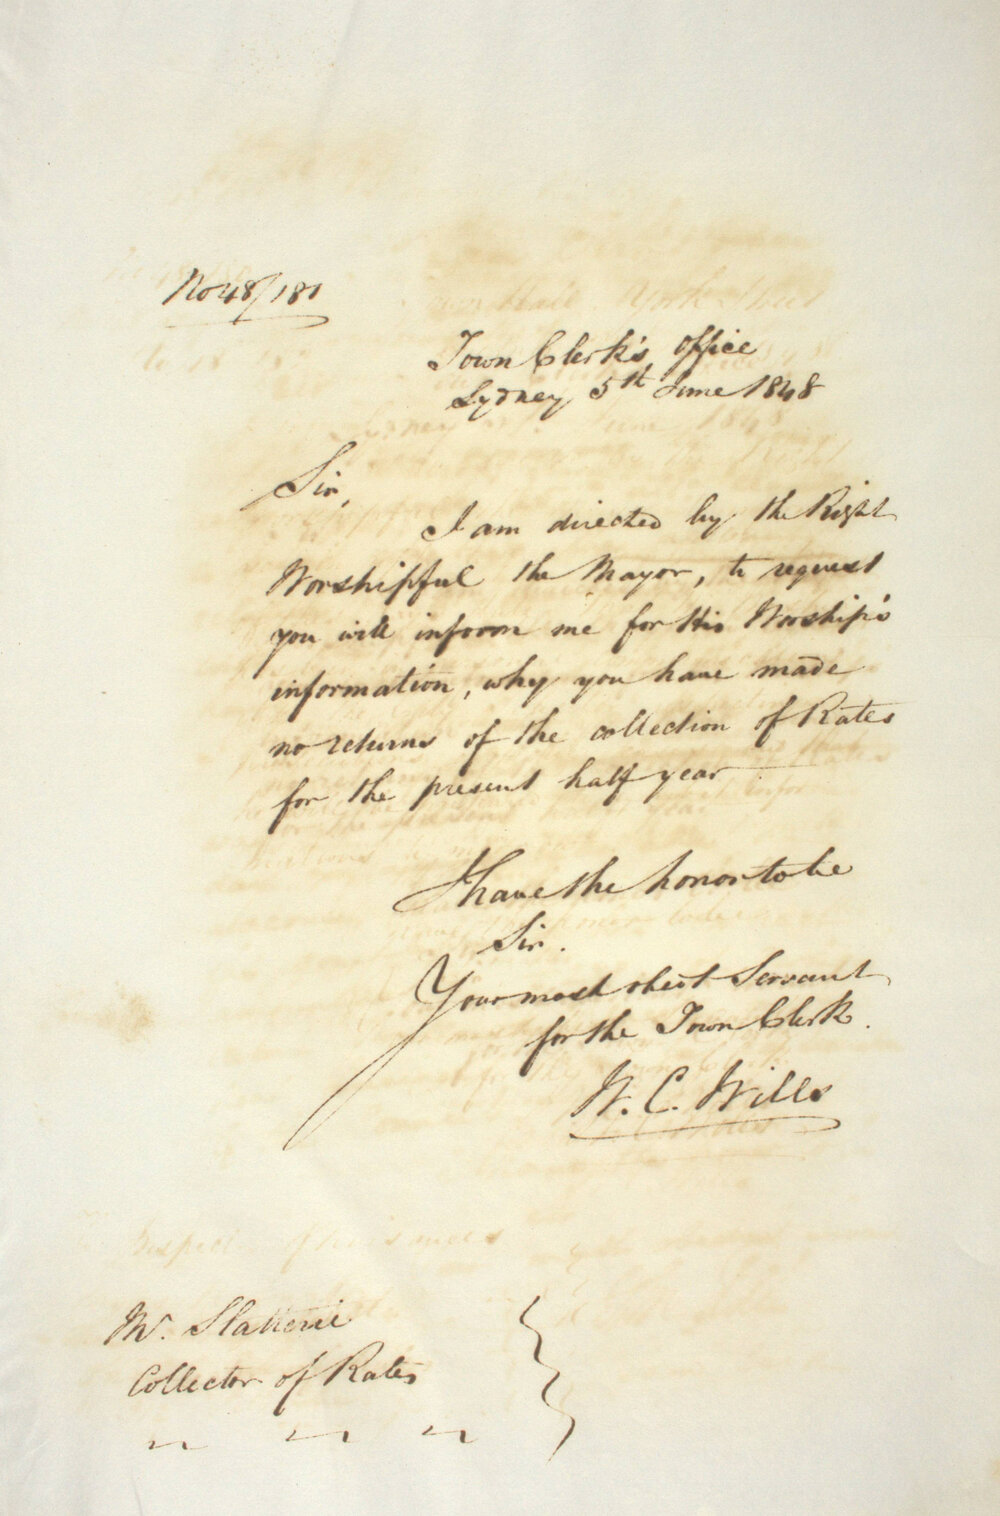 No 48/181
Town Clerk's Office
Sydney 5th June 1848
Sir,
I am directed by the Right
Worshipful the Mayor, to request
you will inform me for His Worship's
information, why you have made
no returns of the collection of Rates
for the present half year
I have the honor to be
Sir.
Your most obedt Servant
for the Town Clerk.
W. C. Wills
Mr. Slatterie
Collector of Rates
" " "